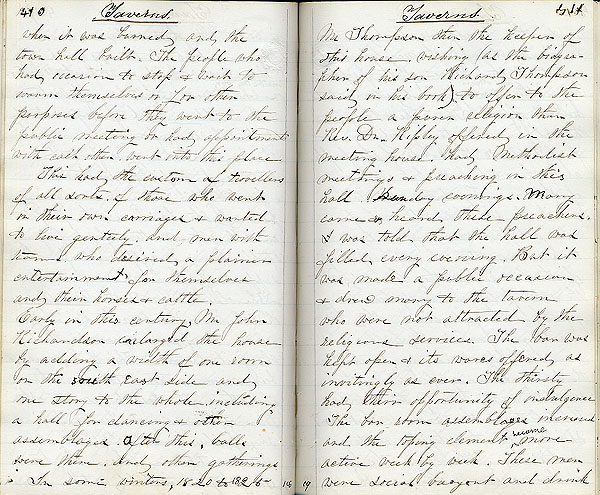 410
Taverns.
when it was burned and the
town hall built. The people who
had occasion to stop & wait to
warm themselves or for other
purposes before they went to the
public meeting or had appointments
with each other, went into this place
This had the custom of travellers
of all sorts, & those who went
in their own carriages & wanted
to live genteely, and men with
teams who desired a plainer
entertainment for themselves
and their horses & cattle.
Early in this century, Mr John
Richardson enlarged the house
by adding a width of one room
on the south east side and
one story to the whole including
a hall for dancing & other
assemblages. After this, balls
were there. And other gatherings
In some winters, 1820 to 1825
18
Taverns.
411
Mr Thompson then the keeper of
this house, wishing (as the biogra-
pher of his son Richard Thompson
said in his book) to offer to the
people a purer religion than
Rev. Dr. Ripley offered in the
meeting house, had Methodist
meetings & preaching in this
hall Sunday evenings. Many
came & heard these preachers.
I was told that the hall was
filled every evening. But it
was made a public occasion
& drew many to the tavern
who were not attracted by the
religious services. The bar was
kept open & its wares offered as
invitingly as ever. The thirsty
had their opportunity of indulgence
The bar room assemblages increased
and the toping element became more
active week by week. These men
were social buoyant and drink
19